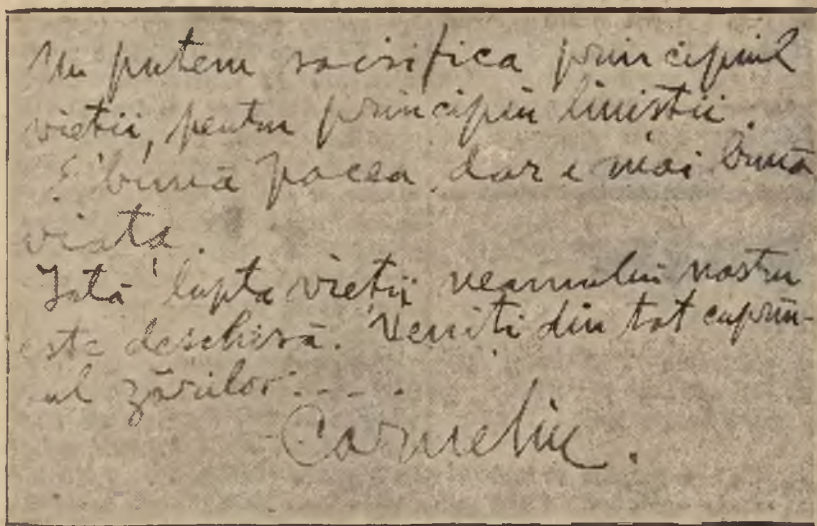 Nu putem sacrifica principiul
vieții, pentru principiu liniștii.
E bună pacea, dar e mai bună
viața.
Iată lupta vieții neamului nostru
este deschisă. Veniți din tot cuprin-
ul zărilor....
Corneliu.